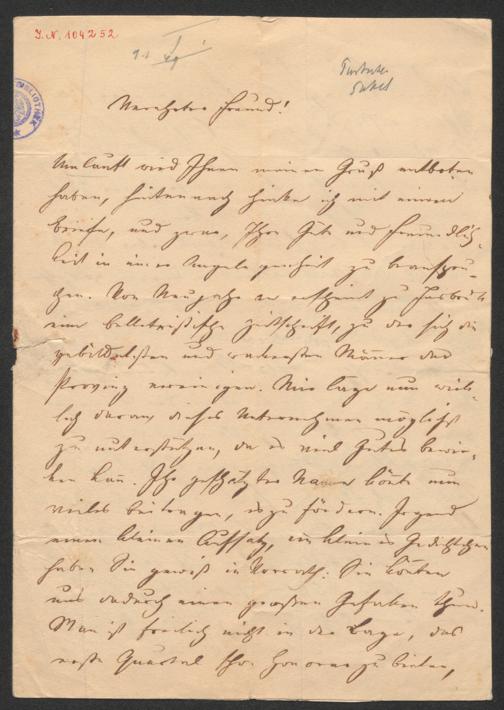 I.N. 104252
Verehrter Freund!
Umlauft wird Ihnen meinen Gruß entboten
haben, hintennach hinke ich mit einem
Briefe, und zwar, Ihre Güte und Freundlich-
keit in einer Angelegenheit zu beanspru-
chen. Von Neujahr an erscheint zu Innsbruck
eine belletristische Zeitschrift, zu der sich die
gebildetsten und wackersten Männer der
Provinz vereinigen. Mir läge nun wirk-
lich daran dieses Unternehmen möglichst
zu unterstützen, da es viel Gutes bewir-
ken kann. Ihr geschätzter Name könte nun
vieles beitragen, es zu fördern. Irgend
einen kleinen Aufsatz, ein kleines Gedichtchen
haben Sie gewiß in Vorrath. Sie könten
uns dadurch einen großen Gefallen thun.
Man ist freilich nicht in der Lage, das
erste Quartal schon Honorar zu bieten,